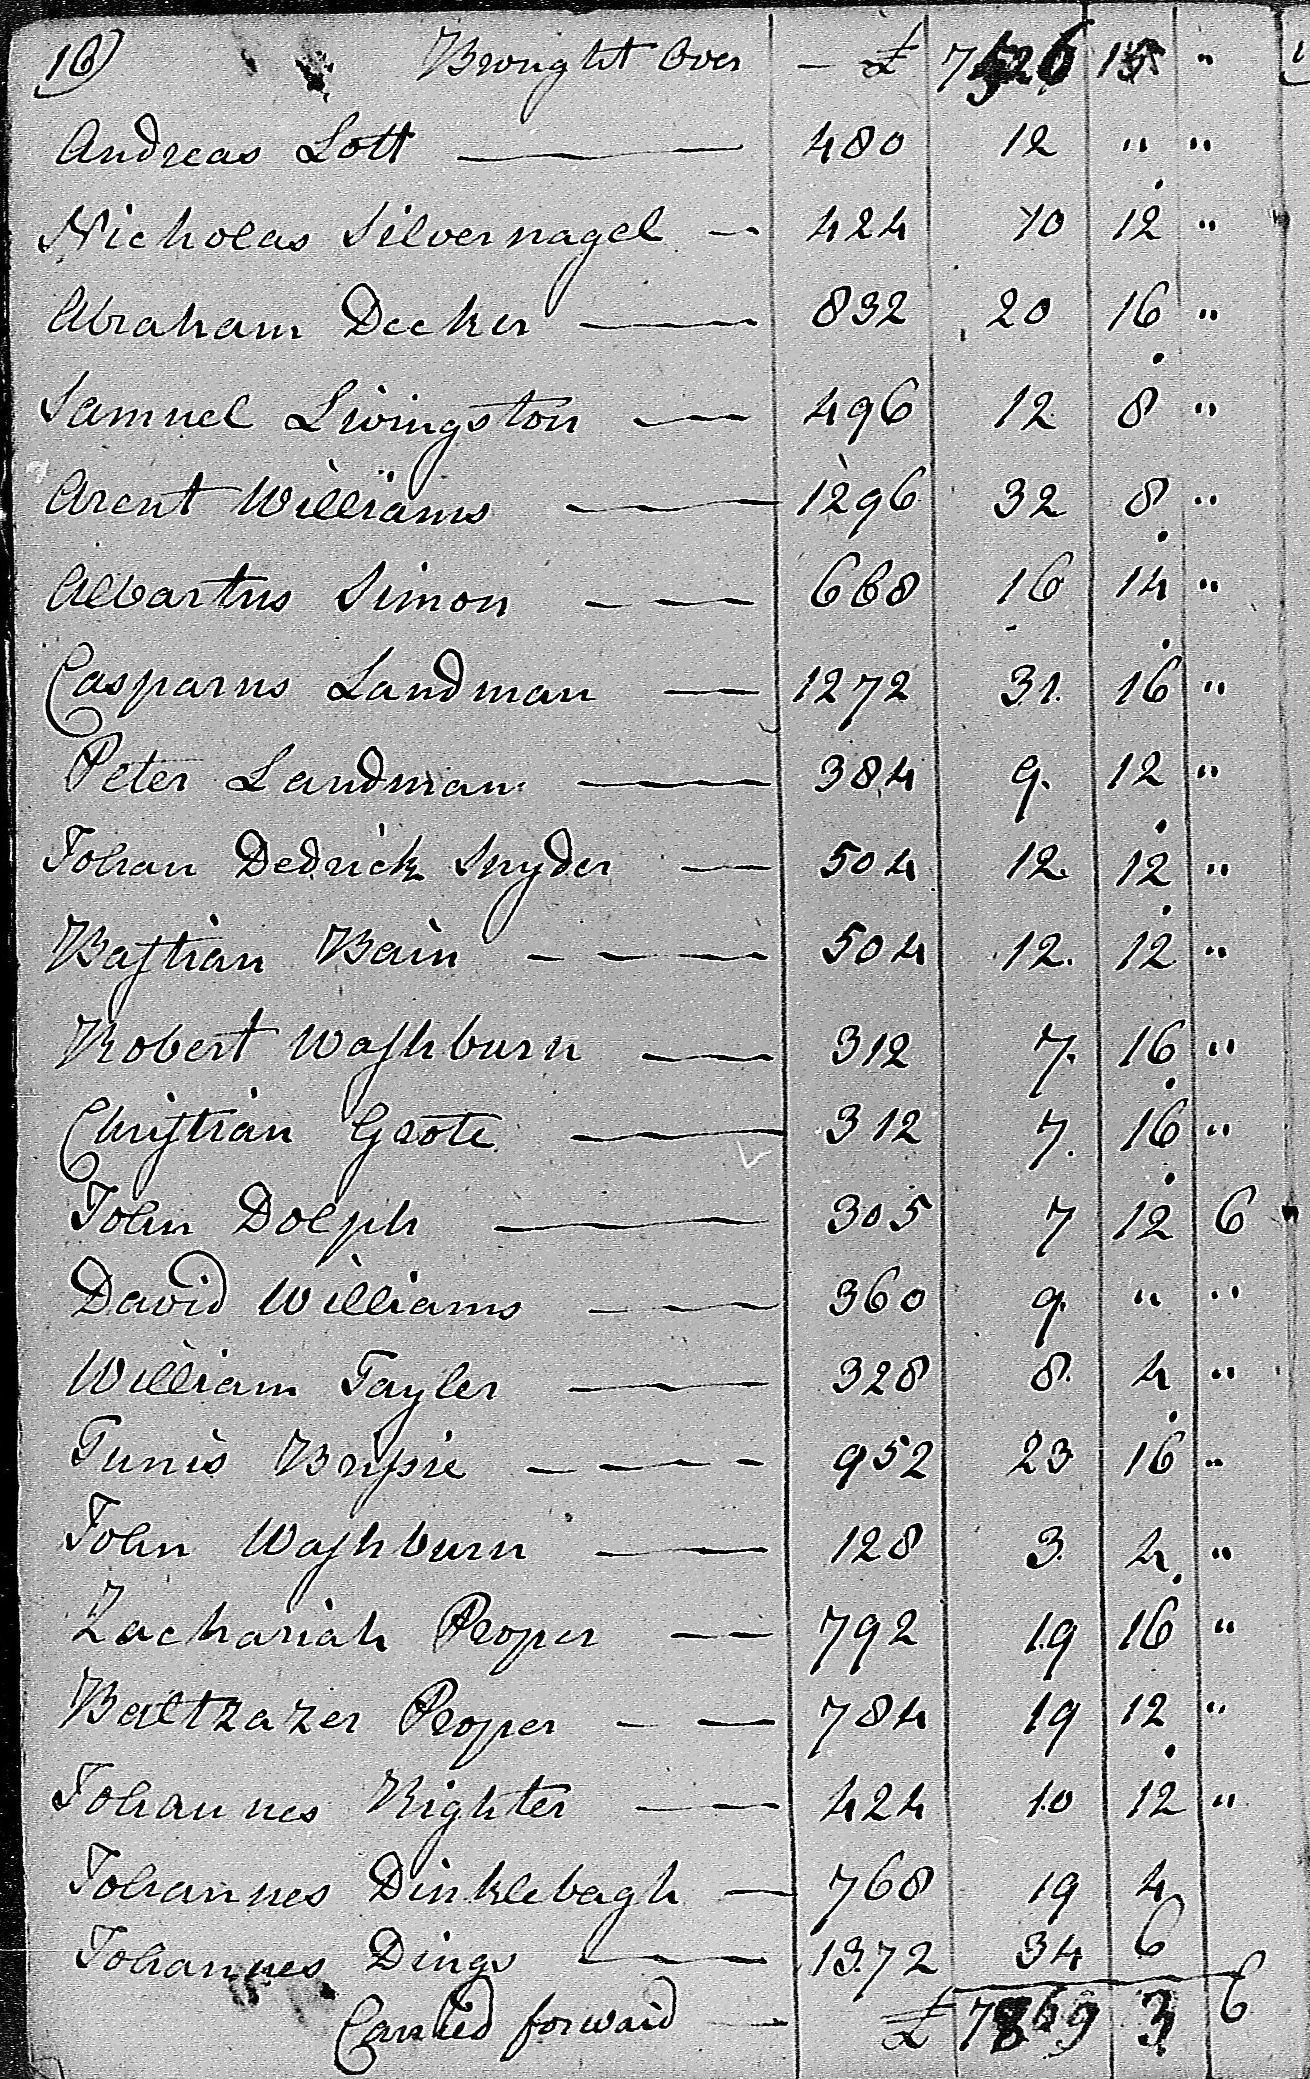 16) Brought Over — £ 7526 15 "
Andreas Lott — 480 12 " "
Nicholas Silvernagel — 424 10 12 "
Abraham Decker — 832 20 16 "
Samuel Livingston — 496 12 8 "
Arent Williams — 1296 32 8 "
Albartus Simon — 668 16 14 "
Casparus Landman — 1272 31 16 "
Peter Landman — 384 9 12 "
Johan Dedrick Snyder — 504 12 12 "
Bastian Bain — 504 12 12 "
Robert Washburn — 312 7 16 "
Christian Grote — 312 7 16 "
John Dolph — 305 7 12 6
David Williams — 360 9 " "
William Tayler — 328 8 4 "
Tunis Brissie — 952 23 16 "
John Washburn — 128 3 4 "
Zachariah Proper — 792 19 16 "
Baltzazer Proper — 784 19 12 "
Johannes Righter — 424 10 12 "
Johannes Dinklebagh — 768 19 4
Johannes Dings — 1372 34 6
Carried forward — £ 7869 3 6